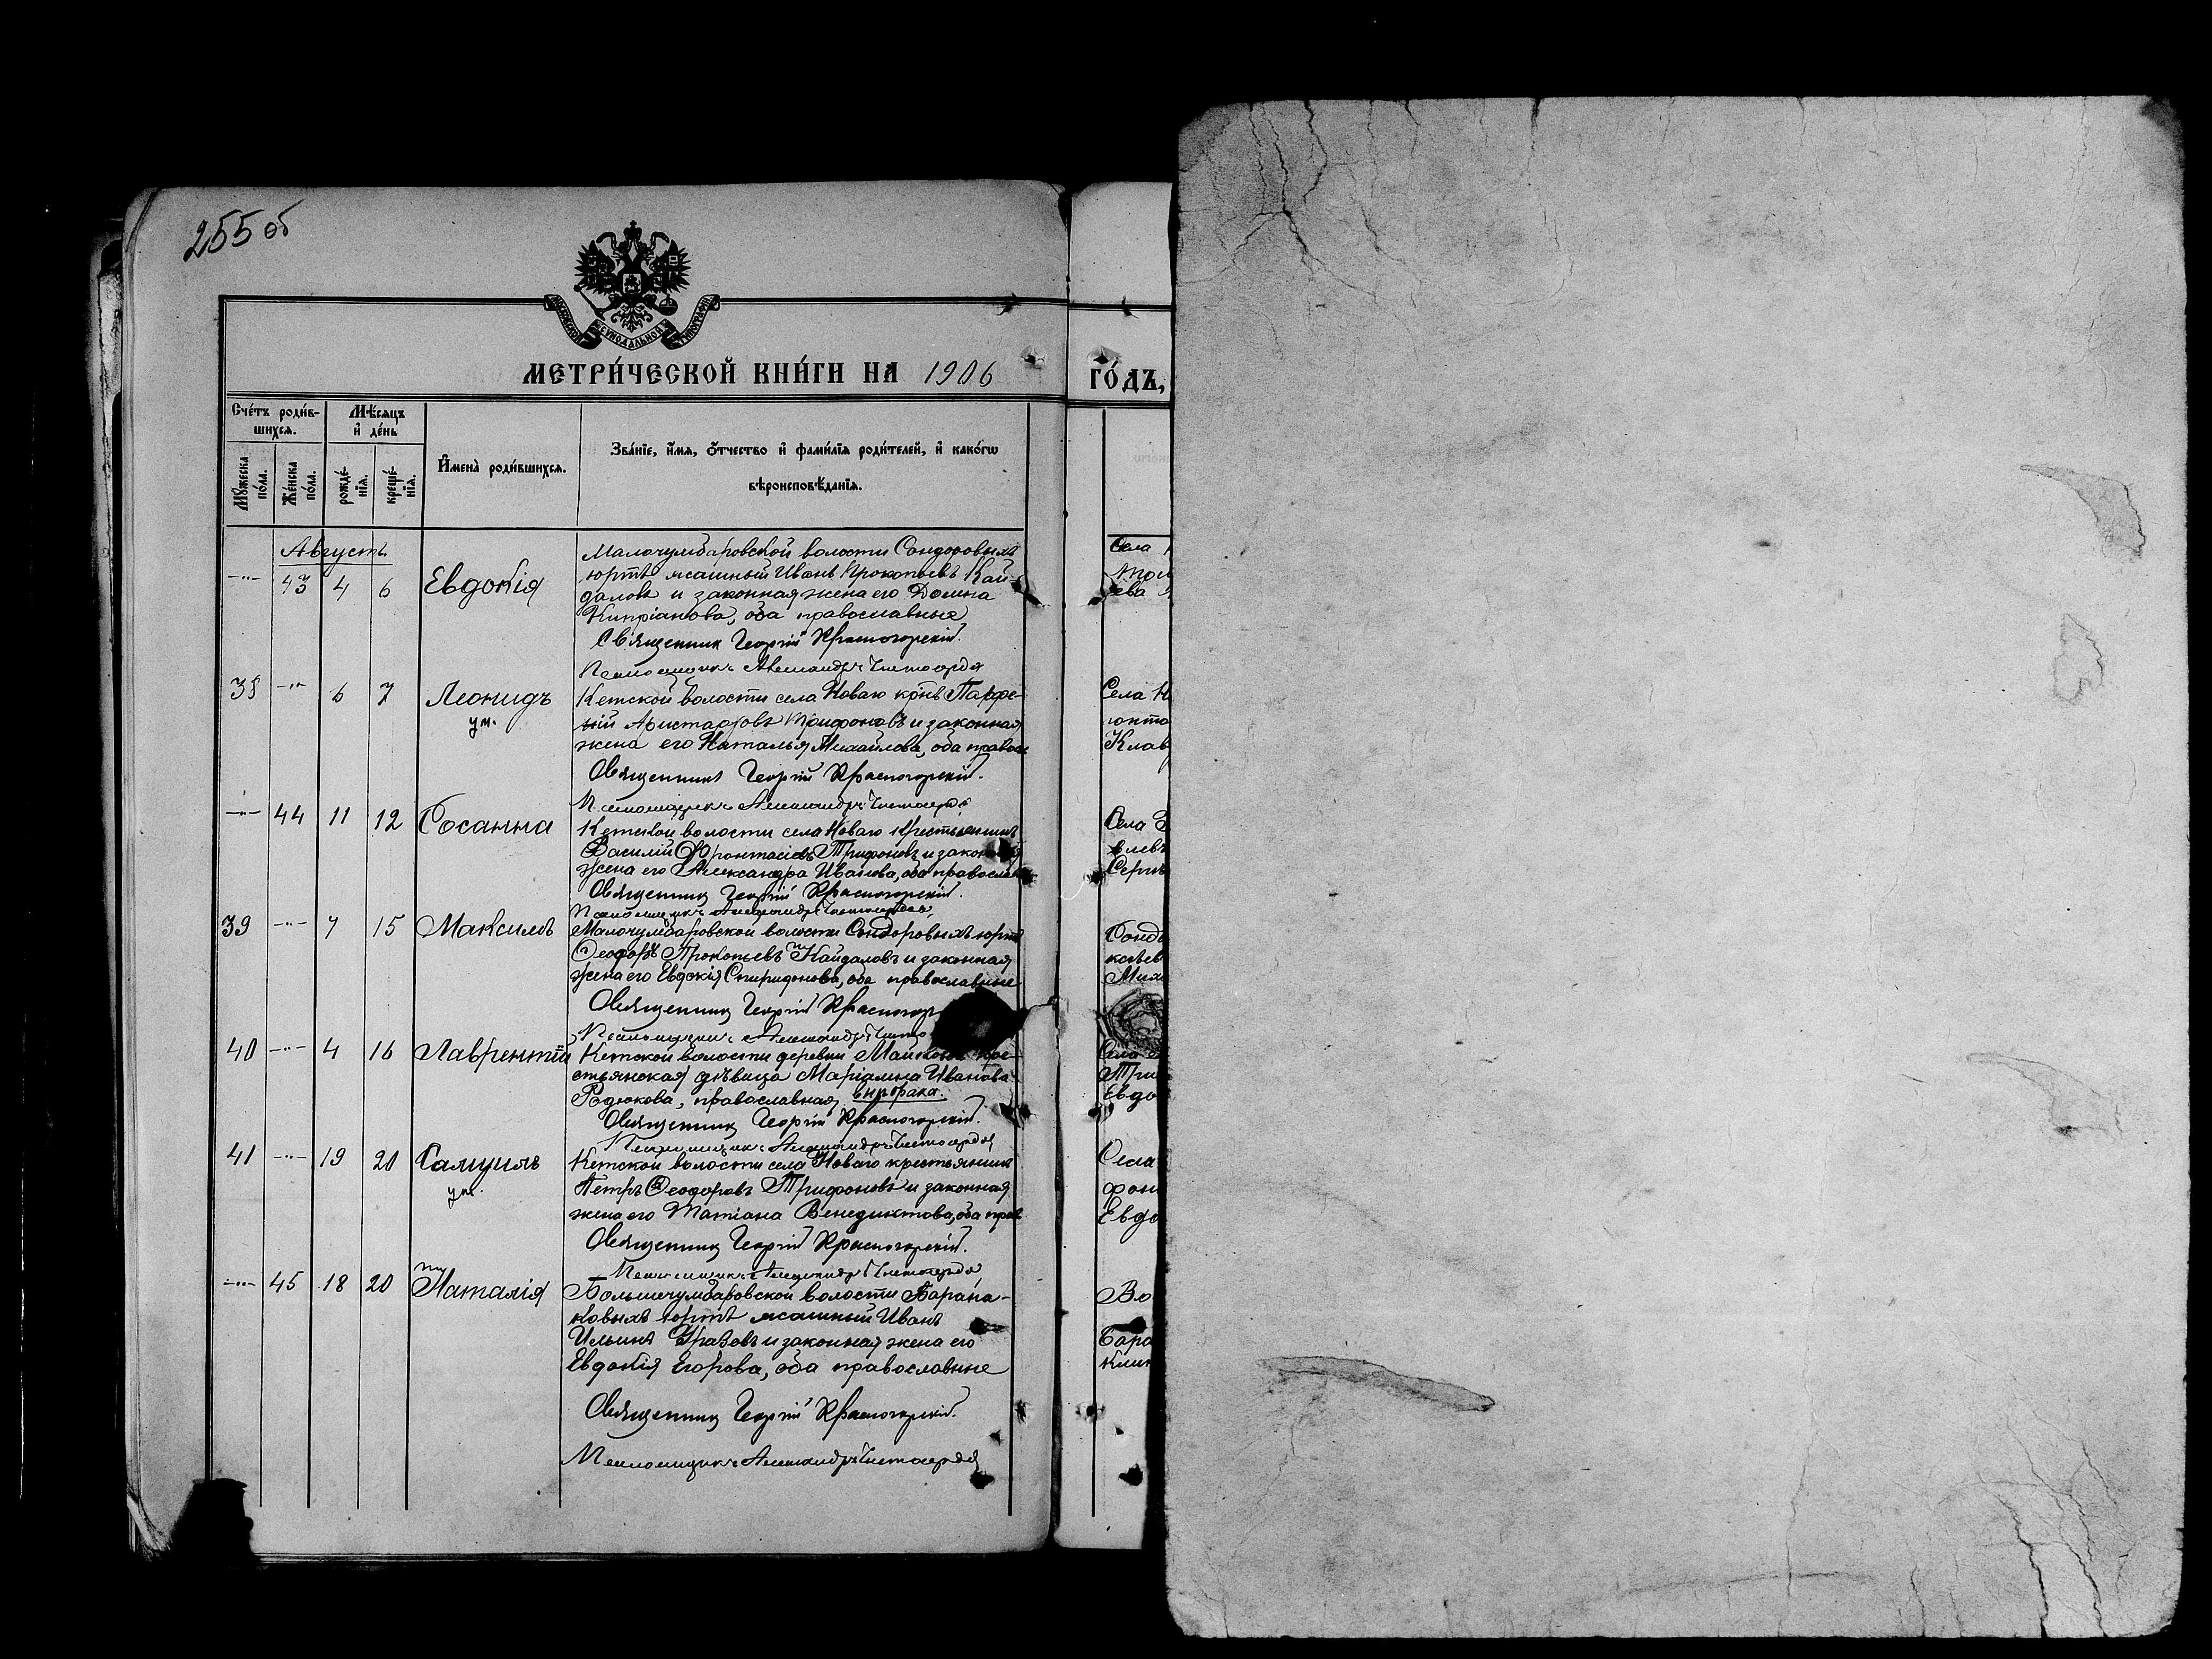 255 об
МОСКОВСКОЙ СѴНОДАЛЬНОЙ ТИПОГРАФІИ
МЕТРИ́ЧЕСКОЙ КНИ́ГИ НА 1906
ГО́ДЪ,
Сче́тъ роди́в-
шихся.
Мѣ́сяцъ
и҆ де́нь
Мꙋ́жеска
по́ла.
Же́нска
по́ла.
рожде́-
нїѧ.
креще́-
нїѧ.
И҆мена̀ роди́вшихсѧ.
Зва́нїе, и҆́мѧ, ѻ҆́тчество и҆ фами́лїѧ роди́телей, и҆ како́гѡ
вѣроисповѣ́данїѧ.
Августъ.
-"- 43 4 6 Евдокія
Малочумбаровской волости Сондоровыхъ
юртъ ясашный Иванъ Прокопьевъ Кай-
даловъ и законная жена его Домна
Кипріанова, оба православные
Священник Георгій Красногорскій.
Псаломщикъ Александръ
38 -"- 6 7 Леонидъ
ум.
Кетской волости села Новаго кр̃нъ Парфе-
ній Аристарховъ Трифоновъ и законная
жена его Наталья Михайлова, оба правосл
Священникъ Георгій Красногорскій.
Псаломщикъ Александръ
-"- 44 11 12 Сосанна
Кетской волости села Новаго крестьянинъ
Василій Трифоновъ и законная
жена его Александра Иванова, оба православ
Священникъ Георгій Красногорскій.
Псаломщикъ Александръ
39 -"- 7 15 Максимъ
Малочумбаровской волости Сондоровыхъ юртъ
Ѳеодоръ Прокопьевъ Кайдаловъ и законная
жена его Евдокія Спиридонова, оба православные
Священникъ Георгій Красногор
Псаломщикъ Александръ
40 -"- 4 16 Лаврентій
Кетской волости деревни кре-
стьянская дѣвица Маріамна Иванова
Родюкова, православная, внѣ брака.
Священникъ Георгій Красногорскій.
Псаломщикъ Александръ
41 -"- 19 20 Самуилъ
ум.
Кетской волости села Новаго крестьянинъ
Петръ Ѳеодоровъ Трифоновъ и законная
жена его Татіана Венедиктова, оба прав
Священникъ Георгій Красногорскій.
Псаломщикъ Александръ
-"- 45 18 20 Наталія
Большечумбаровской волости Барана-
ковыхъ юртъ ясашный Иванъ
Ильинъ и законная жена его
Евдокія Егорова, оба православные
Священникъ Георгій Красногорскій.
Псаломщикъ Александръ
Села
ева
Села Н
Клав
Села
Серг
Сонд
Мих
Села
Три
Евдо
Села
фон
Евдо
Во
Бара